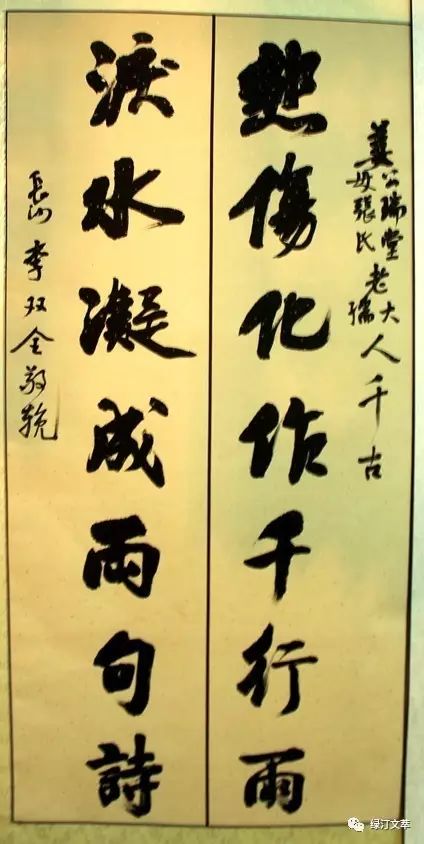 姜公瑞堂老大人千古
母張氏孺
悲傷化作千行雨
淚水凝成兩句詩
長沙李双全敬輓
绿汀文萃